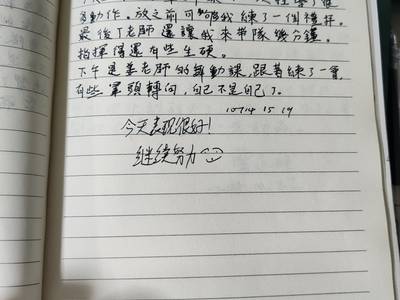 旁動作，放之前可能够我練了一個禮拜。
最後丁老師還讓我來帶隊幾分鐘。
指揮得還有些生硬。
下午是姜老師的舞動課，跟著練了一會，
有些暈頭轉向，自己不是自己了。
今天表现很好！
继续努力